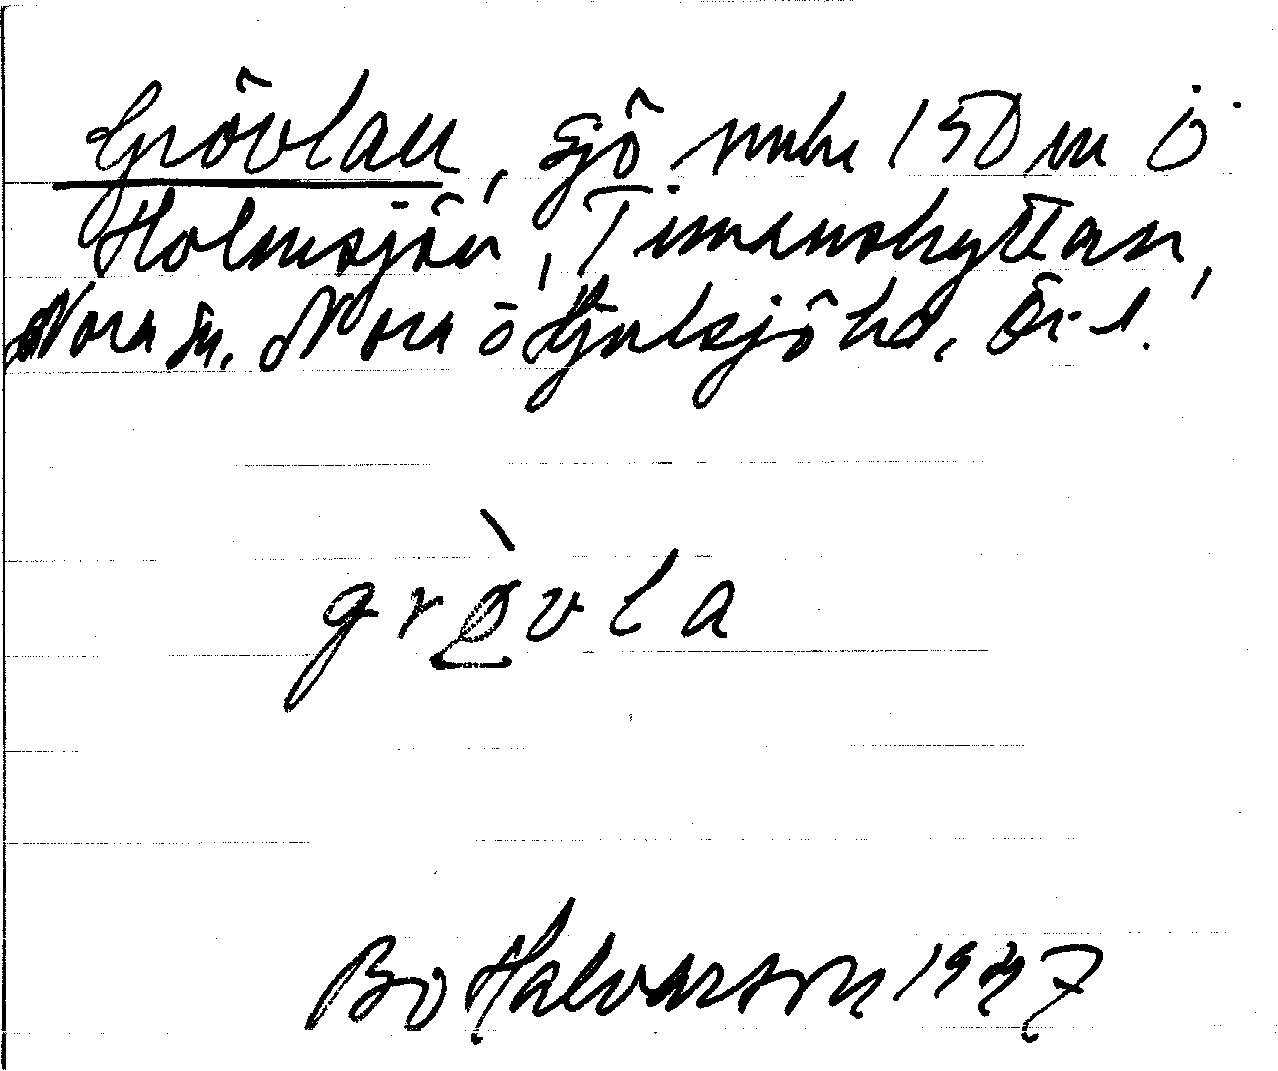 Grövlan, sjö 150 m Ö
Holmsjön, Timanshyttan,
Nora sn. Nora o Hjulsjö hd, Ör. l.
grø̀vla
Bo Halvarson 1937